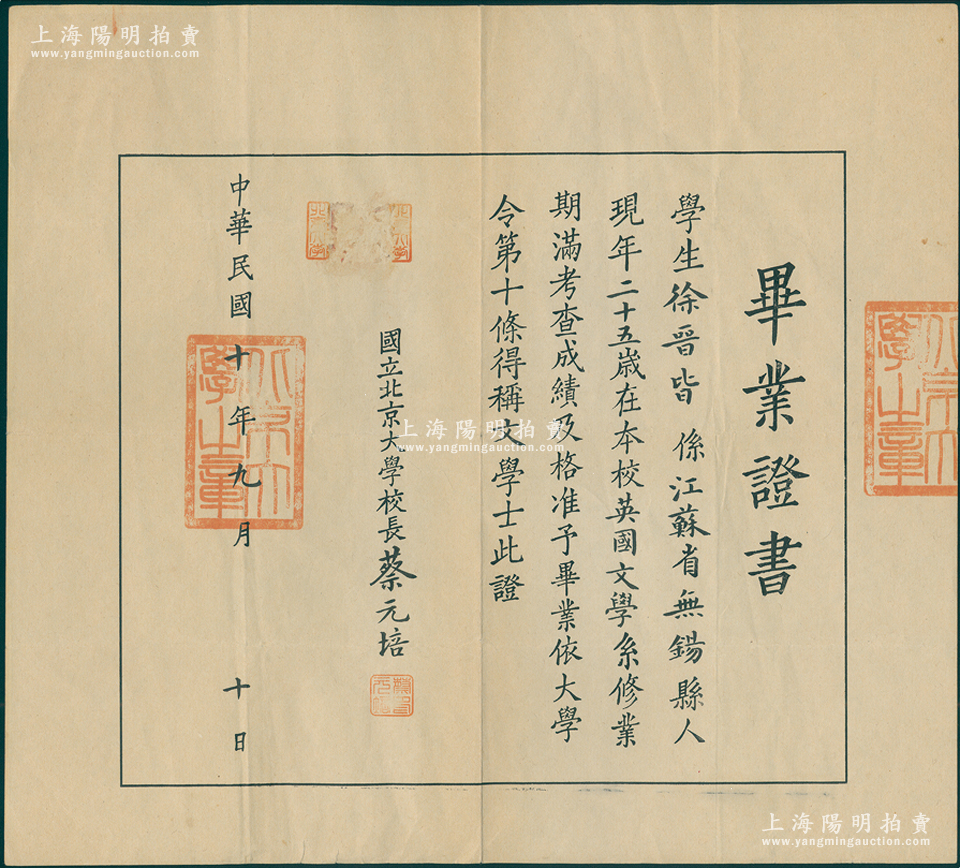 上海陽明拍賣
www.yangmingauction.com
畢業證書
學生徐晉皆係江蘇省無錫縣人
現年二十五歲在本校英國文學系修業
期滿考查成績及格准予畢業依大學
令第十條得稱文學士此證
國立北京大學校長蔡元培
中華民國十年九月十日
北京大學之章
北京大學之章
上海陽明拍賣
www.yangmingauction.com
上海陽明拍賣
www.yangmingauction.com